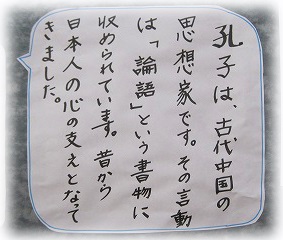 孔子は、古代中国の
思想家です。その言動
は「論語」という書物に
収められています。昔から
日本人の心の支えとなって
きました。